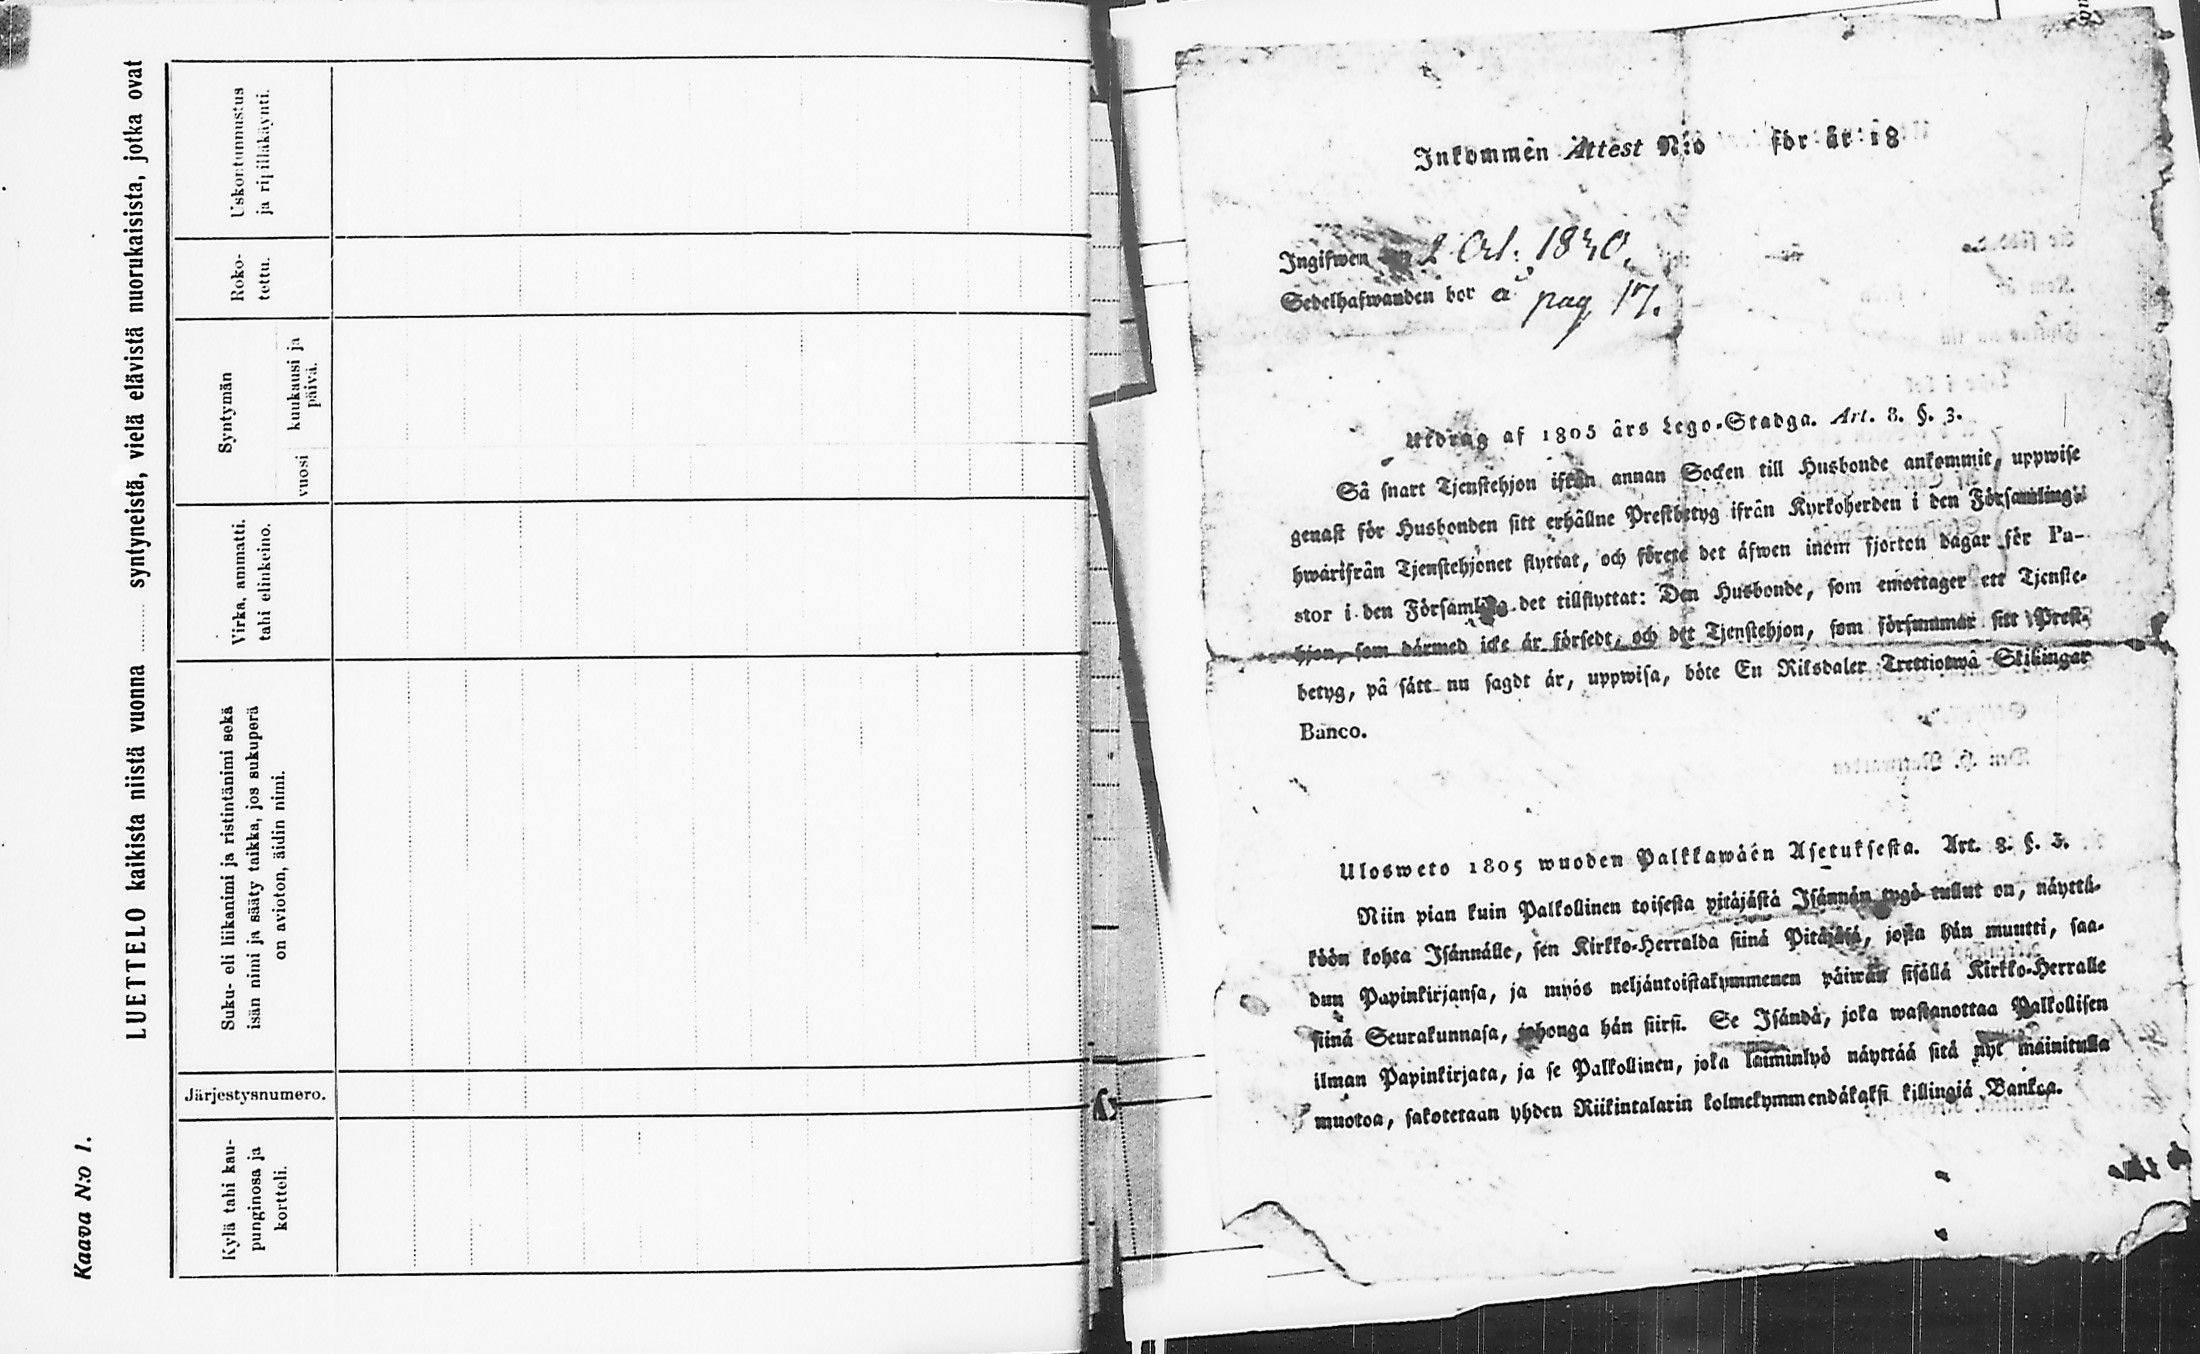 Kaava N:o 1.
LUETTELO kaikista niistä vuonna ........ syntyneistä, vielä elävistä nuorukaisista, jotka ovat
Kylä tahi kau-
punginosa ja
kortteli.
Järjestysnumero.
Suku- eli liikanimi ja ristintänimi sekä
isän nimi ja sääty taikka, jos sukuperä
on avioton, äidin nimi.
Virka, ammatti.
tahi elinkeino.
Syntymän
vuosi
kuukausi ja
päivä.
Roko-
tettu.
Uskontunnustus
ja ripilläkäynti.
Inkommen Attest N:o för år 18
Ingifwen 2 Oct. 1840.
Sedelhafwanden bor å pag 17.
Utdrag af 1805 års Lego-Stadga. Art. 8. §. 3.
Så snart Tjenstehjon ifrån annan Socken till Husbonde ankommit, uppwise
genast för Husbonden sitt erhållne Prestbetyg ifrån Kyrkoherden i den Församling,
hwarifrån Tjenstehjonet flyttat, och förete det äfwen inom fjorton dagar för Pa-
stor i den Församling det tillflyttat: Den Husbonde, som emottager ett Tjenste-
hjon, som därmed icke är försedt, och det Tjenstehjon, som försummar sitt Prest-
betyg, på sätt nu sagdt är, uppwisa, böte En Riksdaler Trettiotwå Skillingar
Banco.
Ulosweto 1805 wuoden Palkkawäen Asetuksesta. Art. 8. §. 3.
Niin pian kuin Palkollinen toisesta pitäjästä Isännän tygö tullut on, näyttä-
köön kohta Isännälle, sen Kirkko-Herralda siinä Pitäjäsä, josta hän muutti, saa-
dun Papinkirjansa, ja myös neljäntoistakymmenen päiwän sisällä Kirkko-Herralle
siinä Seurakunnasa, johonga hän siirsi. Se Isändä, joka wastanottaa Palkollisen
ilman Papinkirjata, ja se Palkollinen, joka laiminlyö näyttää sitä nyt mainitulla
muotoa, sakotetaan yhden Riikintalarin kolmekymmendäkaksi killingiä Bankoa.